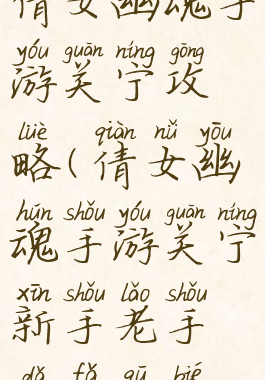 倩女幽魂手
yóu guān níng gōng
游关宁攻
lüè qiàn nǚ yōu
略(倩女幽
hún shǒu yóu guān níng
魂手游关宁
xīn shǒu lǎo shǒu
新手老手
dǎ fǎ qū bié